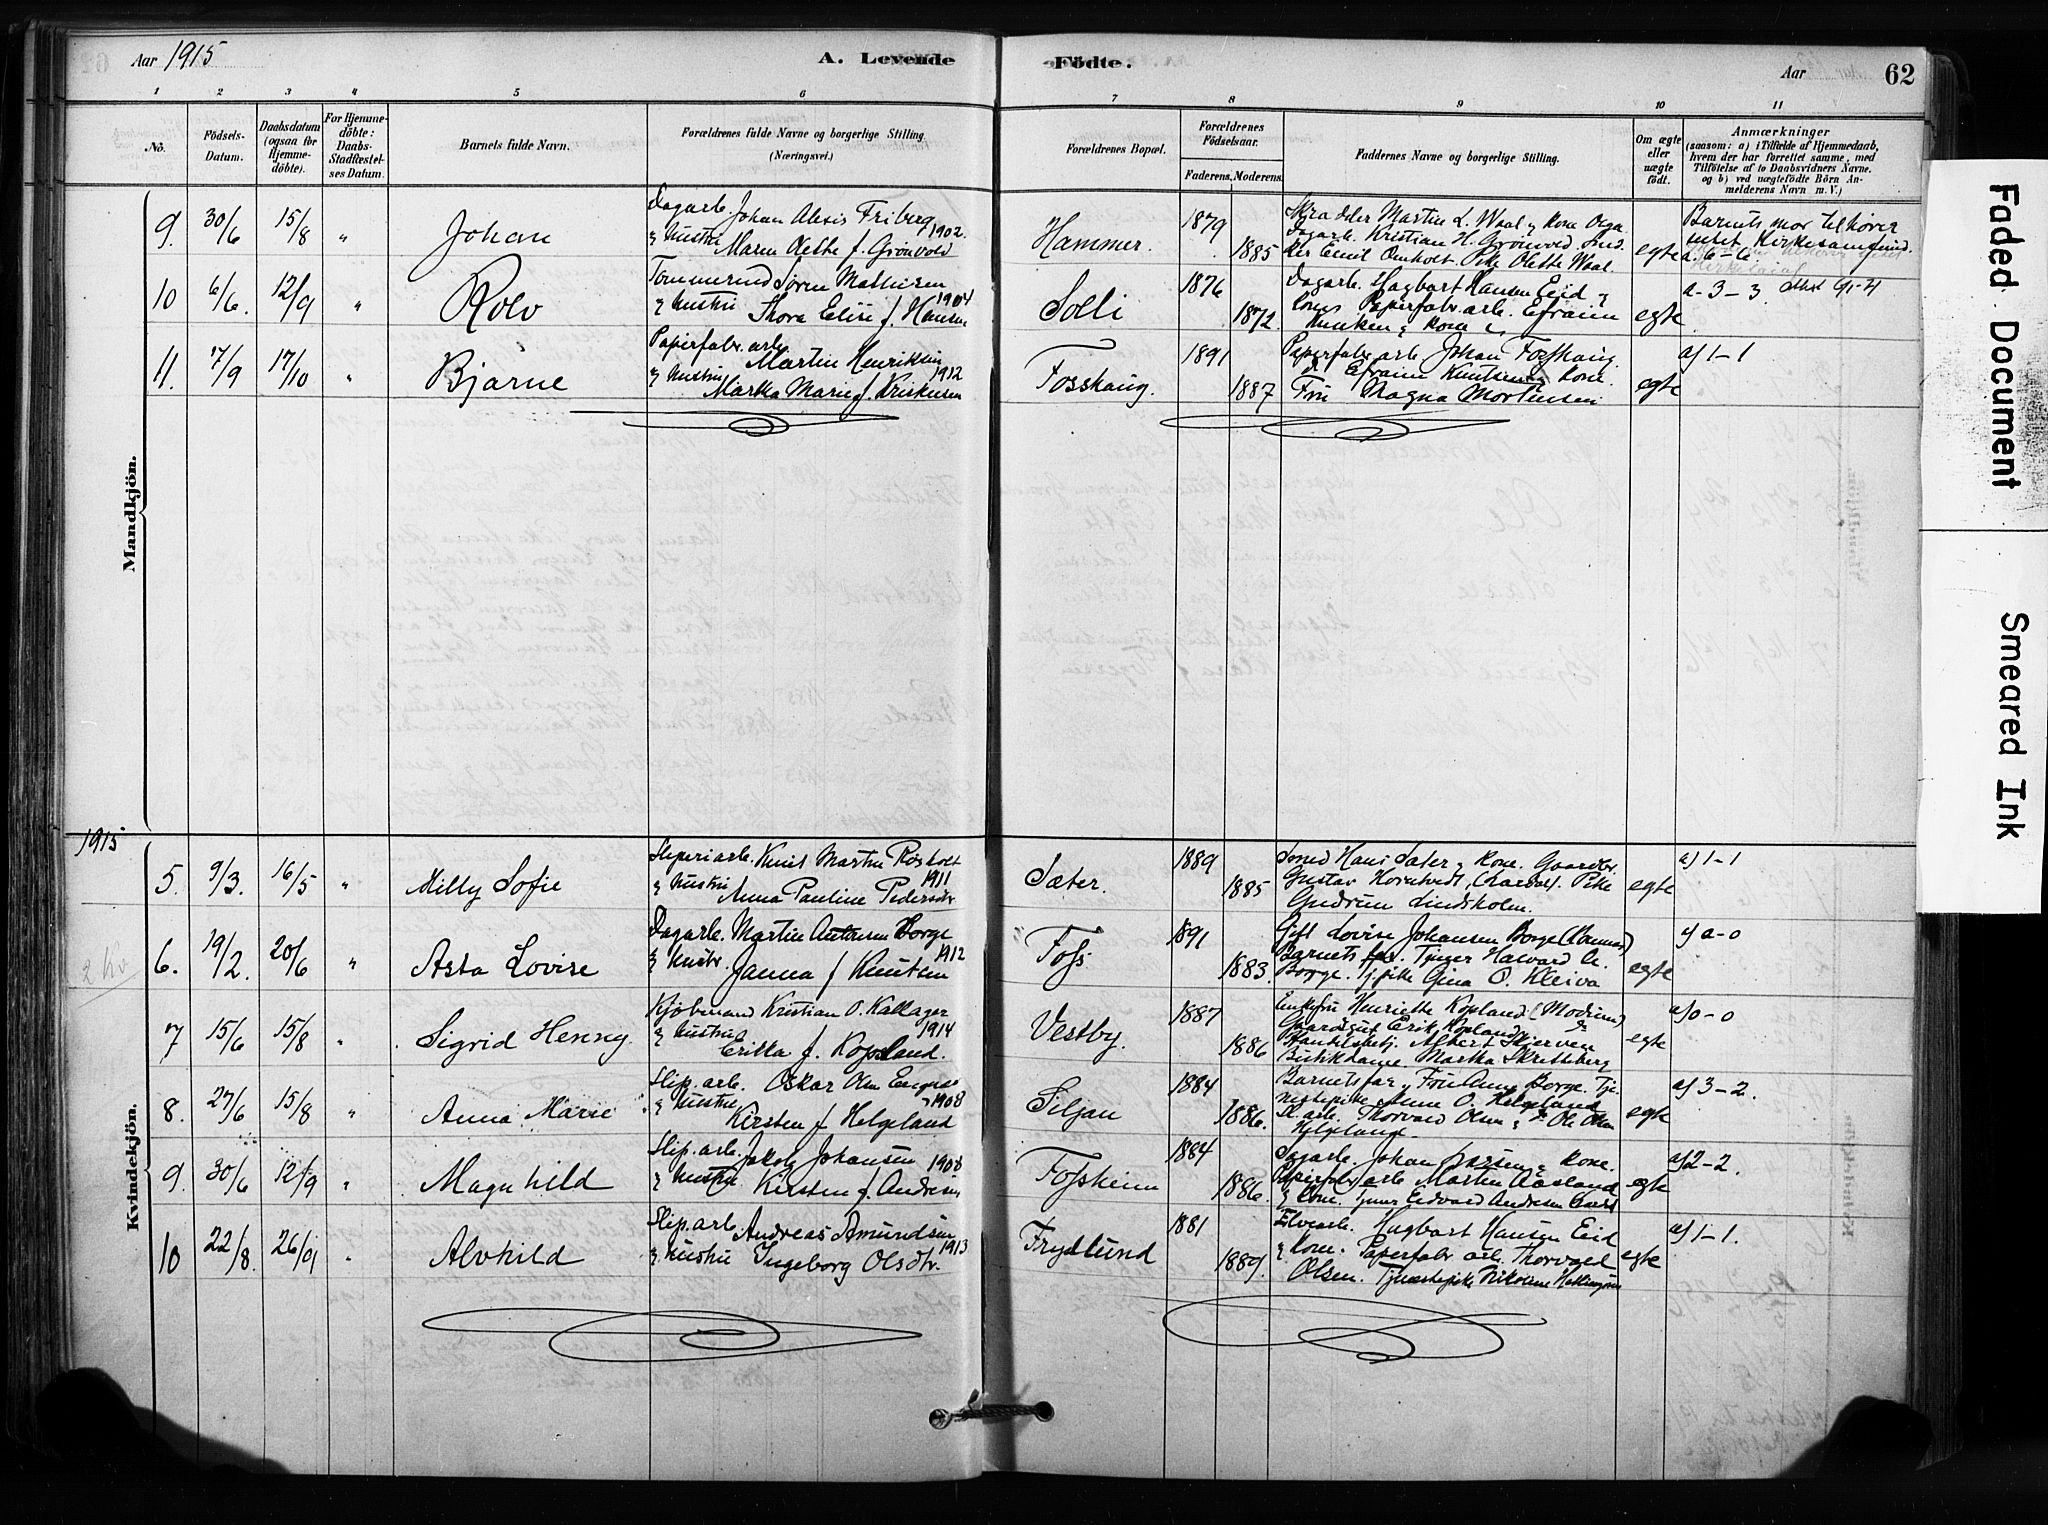 Aar 1915
A. Levende Födte.
Aar
62
1 2 3 4 5 6 7 8 9 10 11
No.
Födsels-
Datum.
Daabsdatum
(ogsaa for
Hjemme-
döbte).
For Hjemme-
döbte:
Daabs-
Stadfæstel-
ses Datum.
Barnets fulde Navn.
Forældrenes fulde Navne og borgerlige Stilling.
(Næringsvei.)
Forældrenes Bopæl.
Forældrenes
Födselsaar.
Faderens. Moderens.
Faddernes Navne og borgerlige Stilling.
Om ægte
eller
uægte
födt.
Anmærkninger
(saasom: a) i Tilfælde af Hjemmedaab,
hvem der har forrettet samme, med
Tilföielse af to Daabsvidners Navne.
og b) ved uægtefödte Börn An-
melderens Navn m. V.)
Mandkjön.
9. 30/6 15/8 "
Johan
Dagarb. Johan Alexis Friberg
& hustru 1902.
Maren Olette f. Grönvold
Hammer.
1879
1885
Skradder Martin L. Waal & Kone Olga
Dagarb. Kristian H. Grönvold
Emil Omholt. Pike Olette Waal.
egte
Barnets mor tilhører
intet Kirkesamfund.
a. 6-6.
10 6/6. 12/9 "
Rolv
Tømmermand Sören Mathisen
& hustru 1904
Thora Elise f. Hansen
Solli
1876
1872.
Dagarb. Hagbart Hansen Eid &
Kone. Papirfabr. arb. Efraim
Knutsen & Kone
egte
a-3-3.
11. 7/9 17/10 "
Bjarne
Papirfabr. arb.
Martin Henriksen
& hustru 1912
Martha Marie f. Kristensen
Fosshaug.
1891
1887
Papirfabr. arb. Johan Fosshaug
Efraim Knutsen & Kone.
Frü Magna Mortensen
egte
a) 1-1
1915
Kvindekjön.
5. 9/3. 16/5 "
Milly Sofie
Sliperiarb. Knut Martin Rösholt
& hustru 1911
Anna Pauline Pedersdtr
Sæter.
1889
1885
Smed Hans Sæter & Kone. Gaardbr.
Gustav Horntvedt, (Larvik). Pike
Gudrun Lindsholm.
egte
a) 1-1
6. 19/2. 20/6 "
Asta Lovise
Dagarb. Martin Antonsen Borge
& hustr. 1912
Janna f Knutsen
Foss.
1891
1883.
Gift Lovise Johansen Borge
Barnets far. Tjener Halvard A.
Borge. Tj. pike Gina O. Kleiva
egte
a) 0-0
7 15/6 15/8 "
Sigrid Henny.
Kjöbmand Kristian O. Kallager
& hustru 1914
Erikka f. Kopsland.
Vestby.
1887
1886
Enkefru Henriette Kopland (Modum)
Gaardgut Erik Kopland
Handelsbetj. Albert Skjerven
Butikdame Martha Skretteberg
egte
a) 0-0
8. 27/6 15/8 "
Anna Marie
Slip. arb. Oskar Olsen
& hustru 1908
Kirsten f Helgeland
Siljan
1884
1886.
Barnets far & Frü Anna Borge. Tje-
nestepike Anne O. Helgeland
Sl. arb. Thorvald Olsen & Ole Olsen
Helgeland.
egte
a) 3-2.
9. 30/6 12/9 "
Magnhild
Slip. arb. Jakob Johansen 1908
& hustru Kirsten f. Andresen
Fossheim
1884
1886.
Dagarb. Johan Larsen & Kone.
Papirfabr arb Martin Aasland
& Kone. Edvard Andresen
egte
a) 2-2.
10 22/8. 26/9 "
Alvhild
Slip. arb. Andreas Amundsen
& hustru Ingeborg Olsdtr. 1913
Frydlund
1881
1889.
Elvearb. Hagbart Hansen Eid
& Kone. Papirfabr arb. Thorvald
Olsen. Tjenestepike Nikoline
egte
a) 1-1.
Faded Document
Smeared Ink